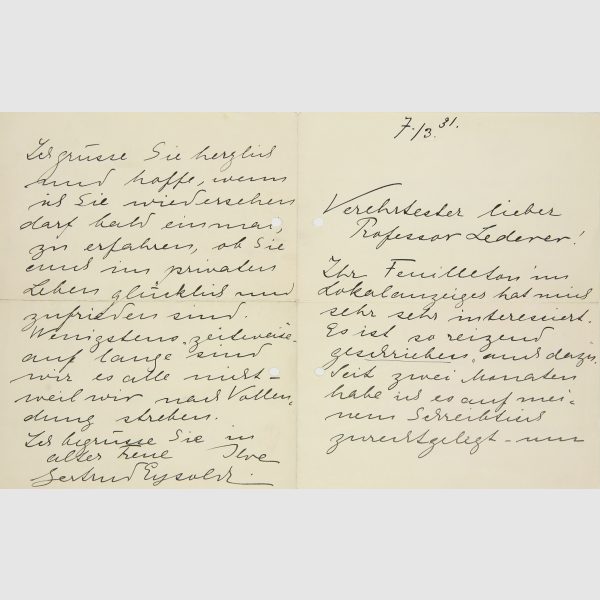 7./3. 31.
Verehrtester lieber
Professor Lederer!
Ihr Feuilleton im
Lokalanzeiger hat mich
sehr sehr interessiert.
Es ist so reizend
geschrieben, auch dazu.
Seit zwei Monaten
habe ich es auf mei-
nem Schreibtisch
zurechtgelegt - um
Ich grüsse Sie herzlich
und hoffe, wenn
ich Sie wiedersehen
darf bald einmal,
zu erfahren, ob Sie
auch im privaten
Leben glücklich und
zufrieden sind.
Wenigstens "zeitweise"
auf lange sind
wir es alle nicht -
weil wir nach Vollen-
dung streben.
Ich begrüsse Sie in
alter Treue Ihre
Gertrud Eysoldt.